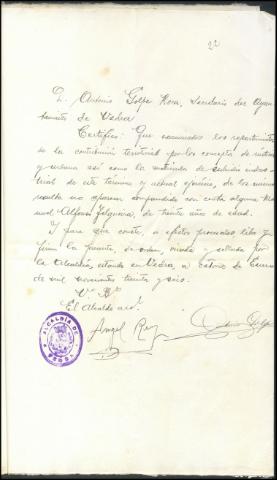 22
D. Antonio Golpe Rora, Secretario del Ayun-
tamiento de Vedra
Certifico: Que examinados los repartimientos
de la contribución territorial por los conceptos de rústica
y urbana así como la matrícula de subsidio indus-
trial de este término y actual ejercicio, de los mismos
resulta no aparece comprendido con cuota alguna Ma-
nuel Alfonso, de treinta años de edad.
Y para que conste, a efectos procesales libro y
firmo la presente, de orden, visada y sellada por
la Alcaldía, estando en Vedra, a catorce de Enero
de mil novecientos treinta y seis.
Vº Bº
El Alcalde
Angel Rey
Golpe
ALCALDÍA DE